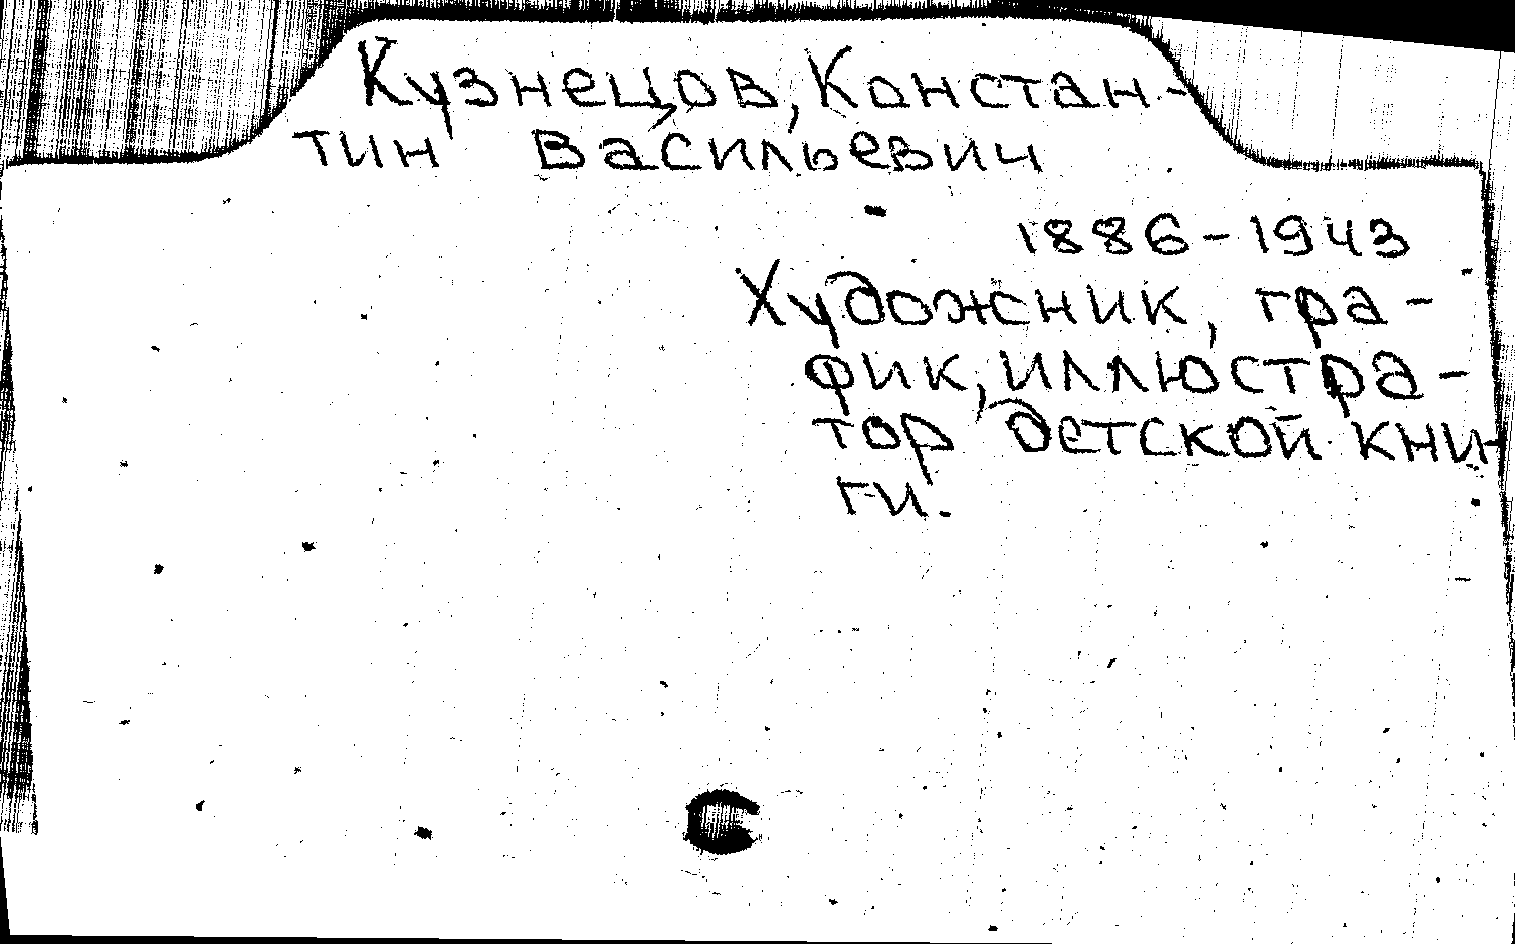 Кузнецов, Констан-
тин Васильевич
1886-1943
Художник, гра-
фик, иллюстра-
тор детской кни-
ги.